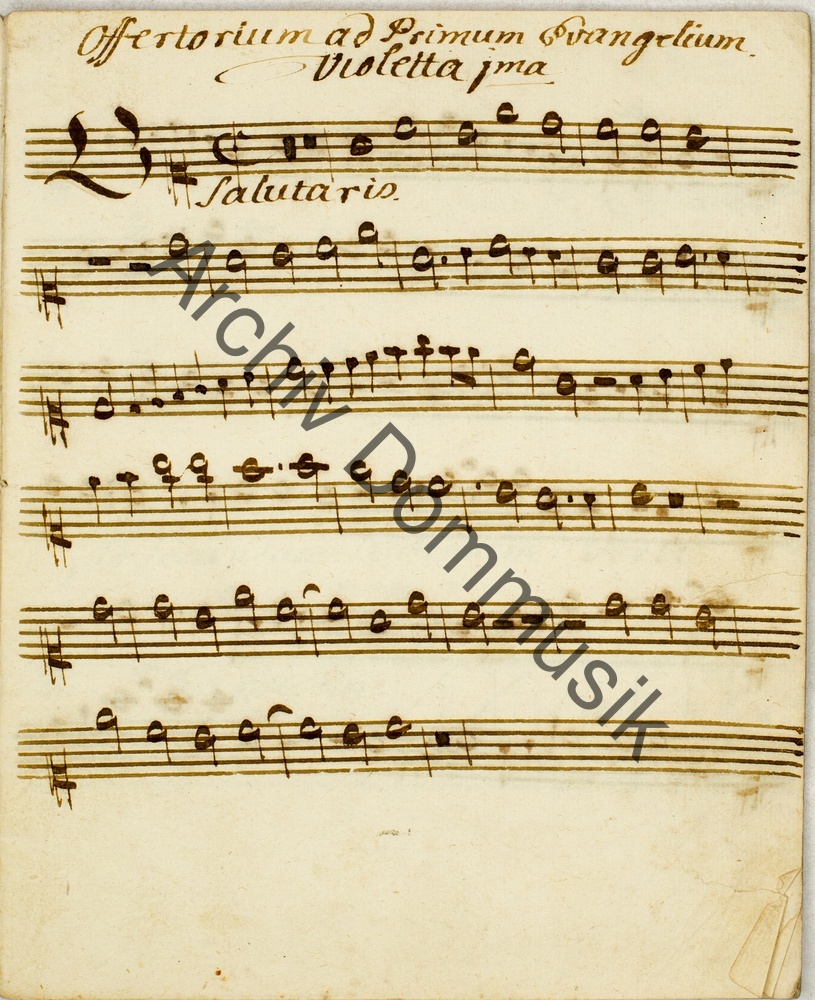 Offertorium ad Primum Evangelium.
Violetta jma
Salutaris.
Archiv Dommusik